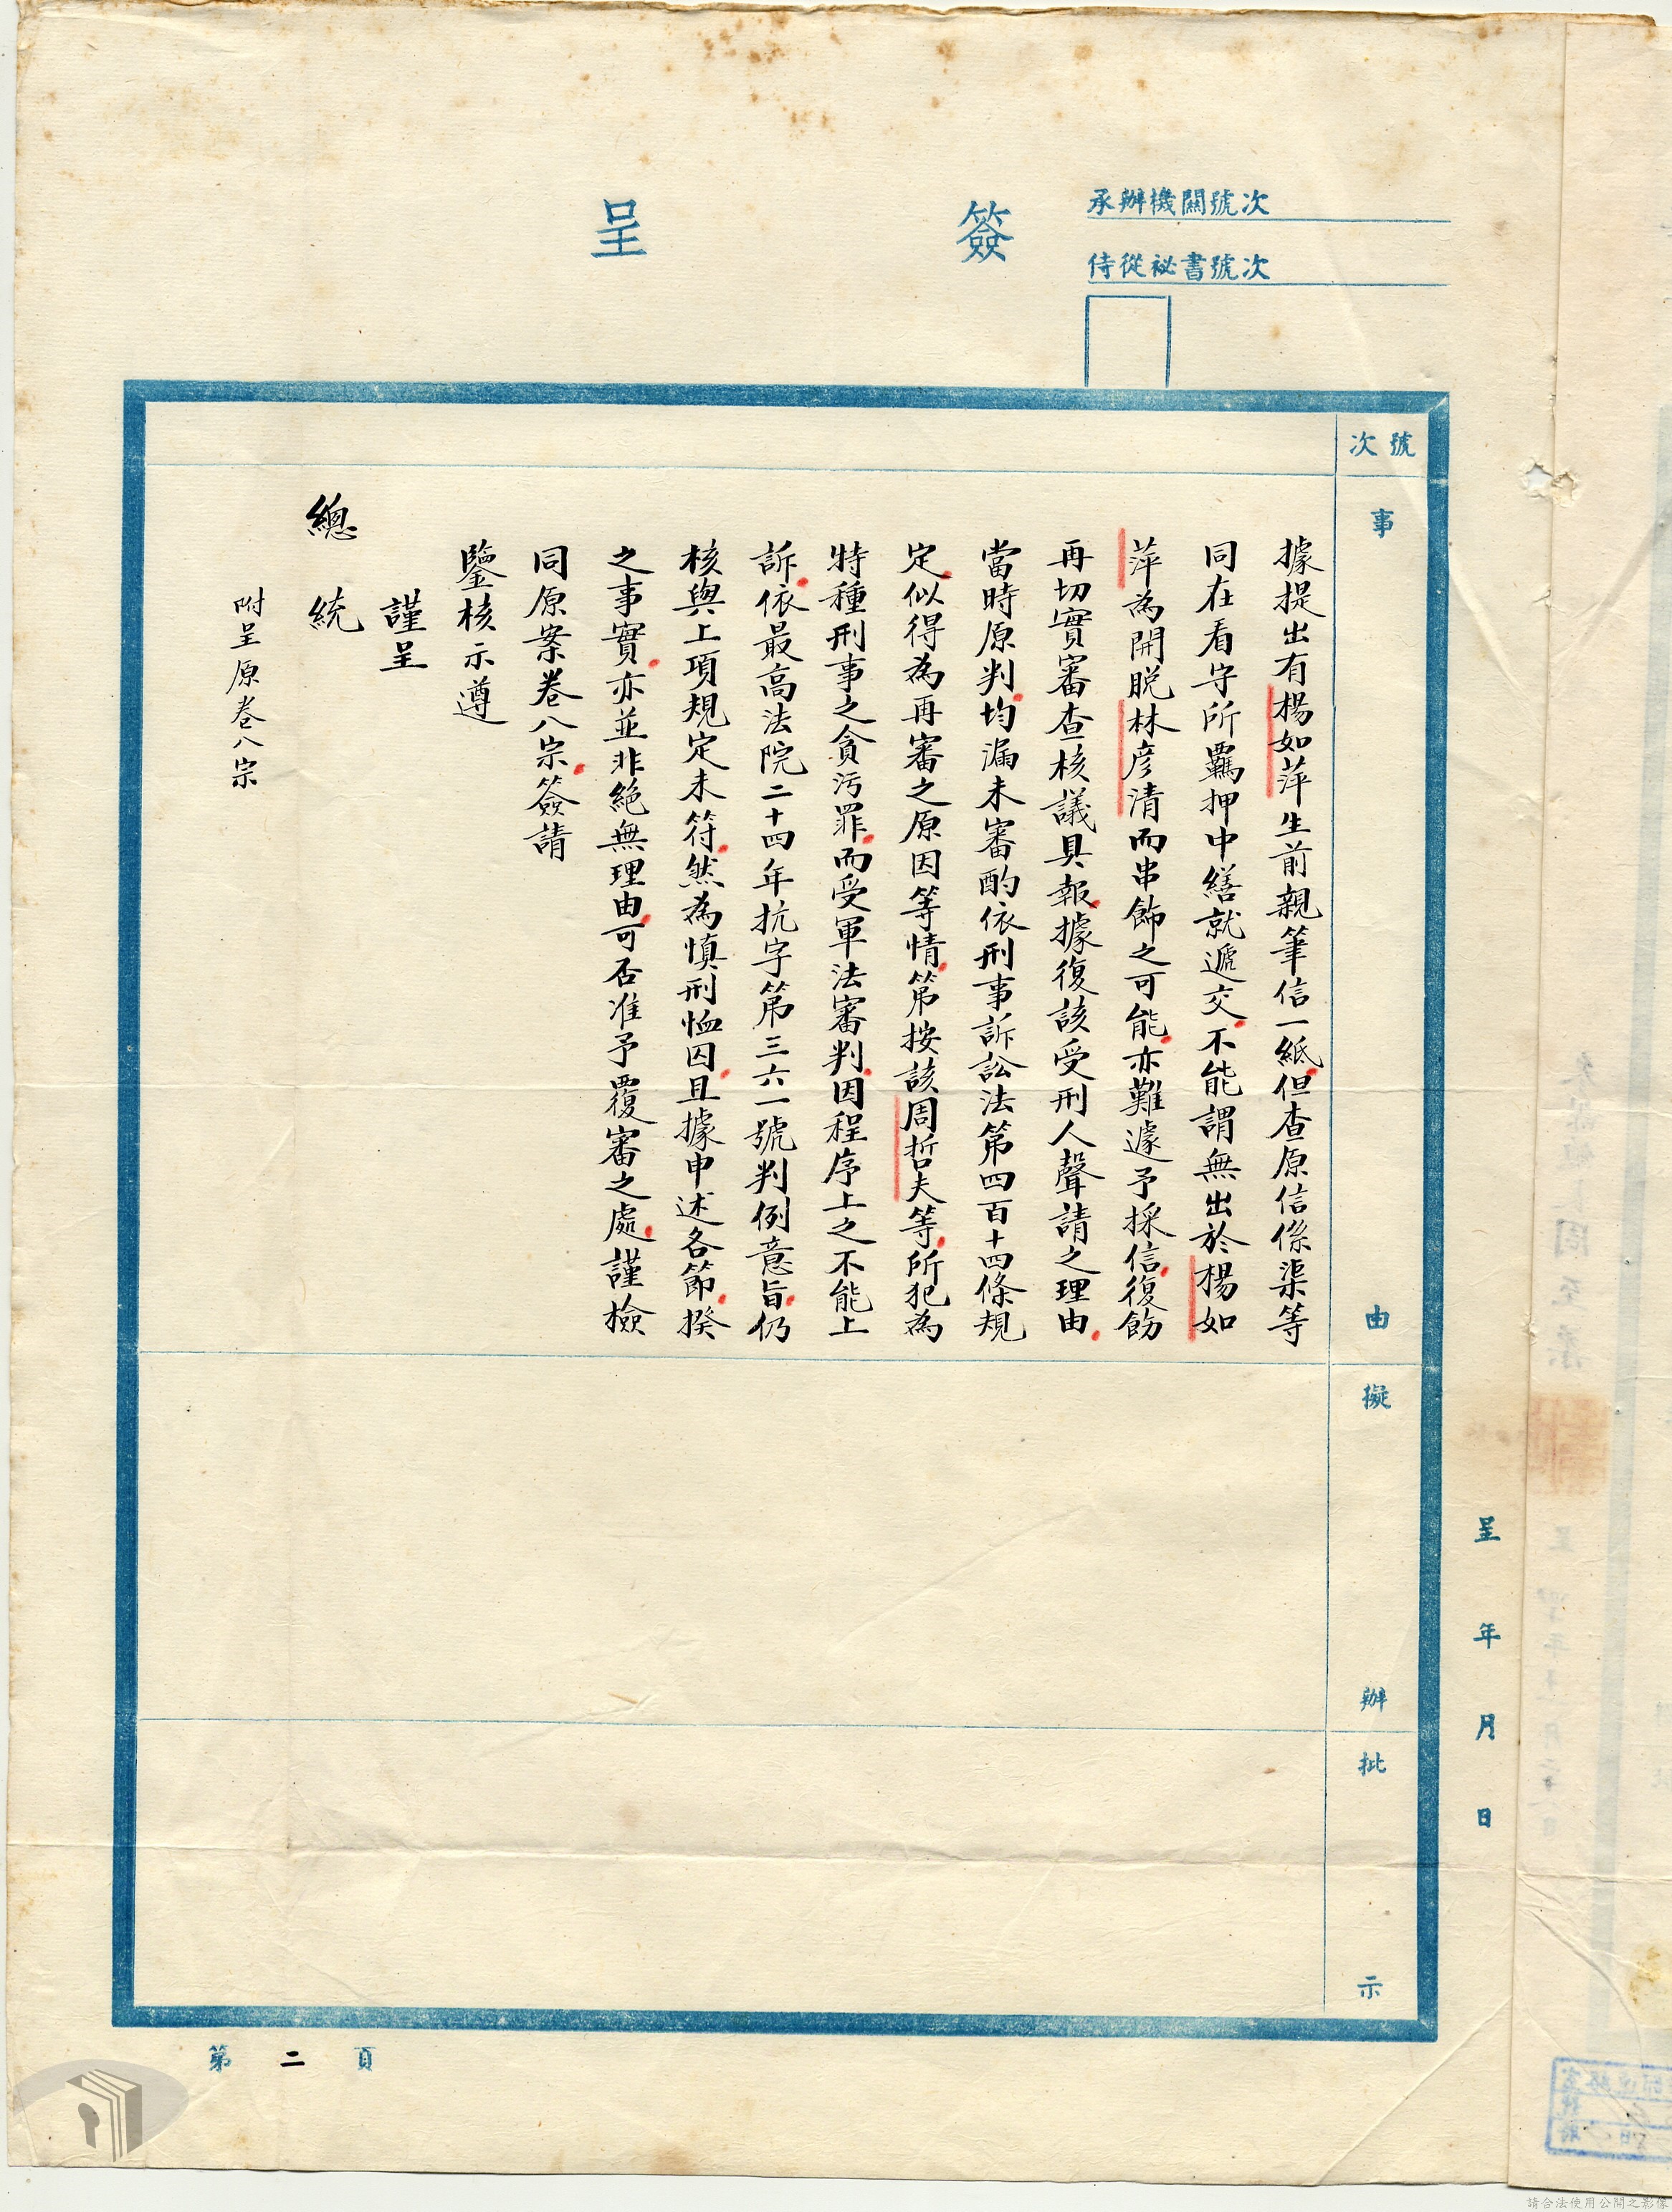 承辦機關號次
侍從祕書號次
簽呈
號次
事由
擬辦
批示
呈 年 月 日
據提出有楊如萍生前親筆信一紙但查原信係渠等
同在看守所羈押中繕就遞交不能謂無出於楊如
萍為開脫林彦清而串飾之可能亦難遽予採信復飭
再切實審查核議具報據復該受刑人聲請之理由
當時原判均漏未審酌依刑事訴訟法第四百十四條規
定似得為再審之原因等情第按該周哲夫等所犯為
特種刑事之貪污罪而受軍法審判因程序上之不能上
訴依最高法院二十四年抗字第三六一號判例意旨仍
核與上項規定未符然為慎刑恤囚且據申述各節揆
之事實亦並非絕無理由可否准予覆審之處謹檢
同原案卷八宗簽請
鑒核示遵
謹呈
總統
附呈原卷八宗
第二頁
請合法使用公開之影像